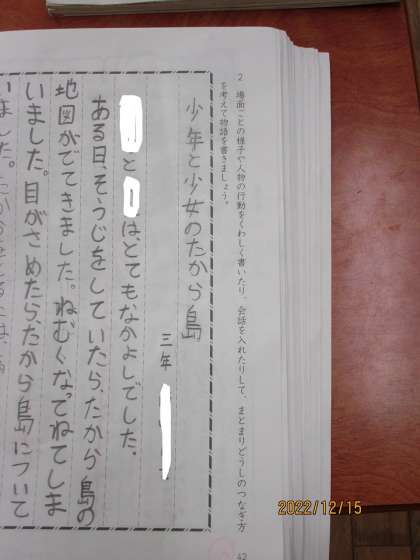 2 場面ごとの様子や人物の行動をくわしく書いたり、会話を入れたりして、まとまりどうしのつなぎ方
を考えて物語を書きましょう。
少年と少女のたから島
三年
とは、とてもなかよしでした。
ある日、そうじをしていたら、たから島の
地図がでてきました。ねむくなってねてしま
いました。目がさめたら、たから島について
いました。
42
2022/12/15